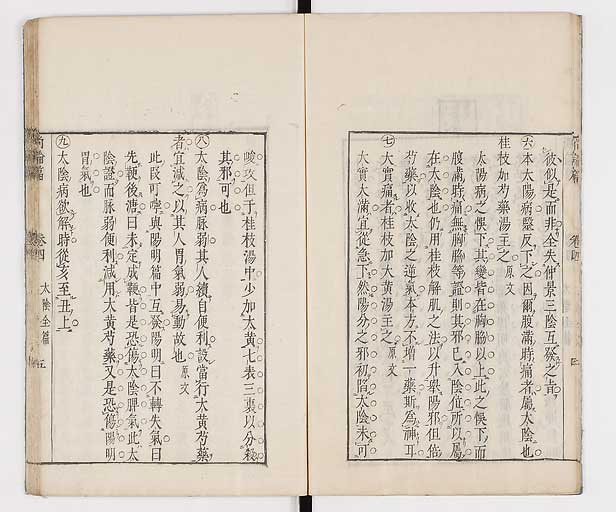 彼似是而非全失仲景三陰互發之旨
六 本太陽病醫反下之因爾腹滿時痛者屬太陰也
桂枝加芍藥湯主之 原文
太陽病之悞下其變皆在胸脇以上此之悞下而
腹滿時痛無胸脇等證則其邪已入陰位所以屬
在太陰也仍用桂枝解肌之法以升舉陽邪但倍
芍藥以收太陰之逆氣本方不增一藥斯爲神耳
七 大實痛者桂枝加大黃湯主之 原文
大實大滿宜從急下然陽分之邪初陷太陰未可
峻攻但于桂枝湯中少加大黃七表三裏以分殺
其邪可也
八 太陰爲病脈弱其人續自便利設當行大黃芍藥
者宜減之以其人胃氣弱易動故也 原文
此叚叮嚀與陽明篇中互發陽明曰不轉失氣曰
先鞕後溏曰未定成鞕皆是恐傷太陰脾氣此太
陰證而脈弱便利減用大黃芍藥又是恐傷陽明
胃氣也
九 太陰病欲解時從亥至丑上
尚論篇 卷四 太陰全篇 五
卷四